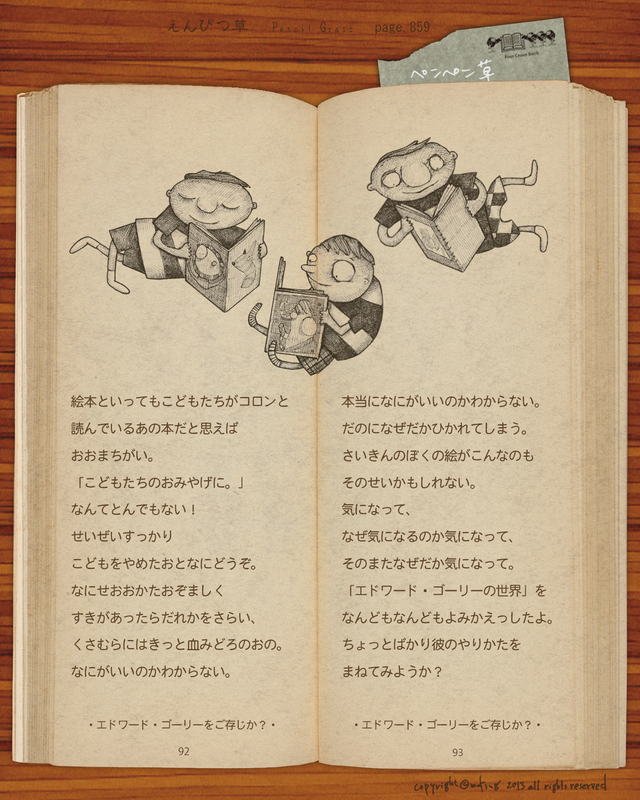 えんぴつ草 Pencil Grass page.859
Four Clover Book
ペンペン草
絵本といってもこどもたちがコロンと
読んでいるあの本だと思えば
おおまちがい。
「こどもたちのおみやげに。」
なんてとんでもない！
せいぜいすっかり
こどもをやめたおとなにどうぞ。
なにせおおかたおぞましく
すきがあったらだれかをさらい、
くさむらにはきっと血みどろのおの。
なにがいいのかわからない。
・エドワード・ゴーリーをご存じか？・
92
本当になにがいいのかわからない。
だのになぜだかひかれてしまう。
さいきんのぼくの絵がこんなのも
そのせいかもしれない。
気になって、
なぜ気になるのか気になって、
そのまたなぜだか気になって。
「エドワード・ゴーリーの世界」を
なんどもなんどもよみかえっしたよ。
ちょっとばかり彼のやりかたを
まねてみようか？
・エドワード・ゴーリーをご存じか？・
93
copyright 2013 all rights reserved